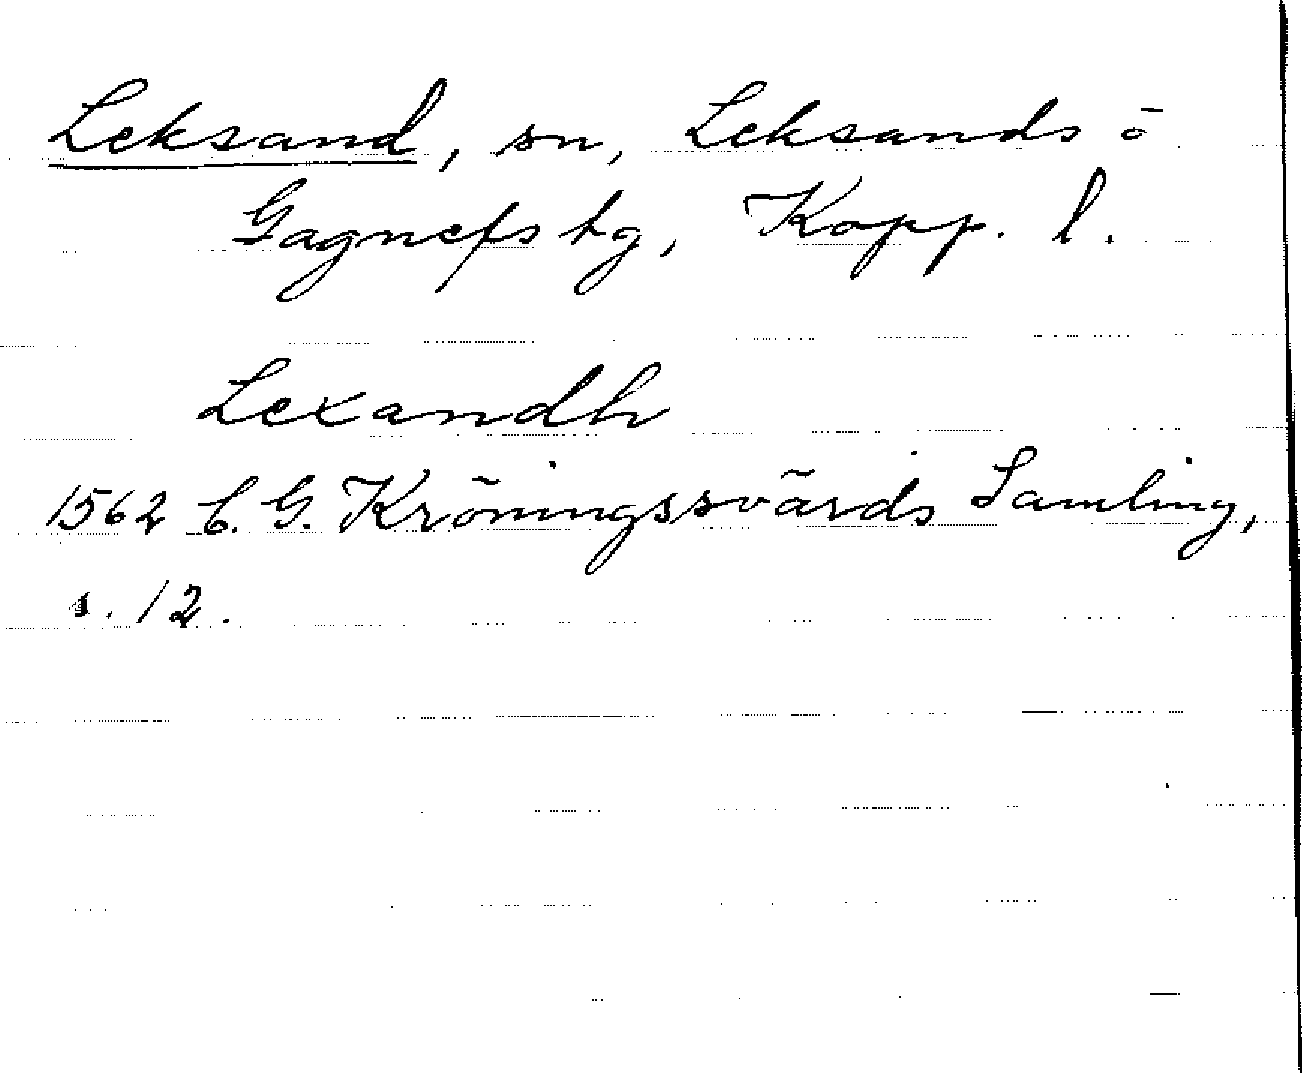 Leksand, sn, Leksands o
Gagnefs tg, Kopp. l.
Lexandh
1562 C. G. Kröningssvärds Samling,
s. 12.